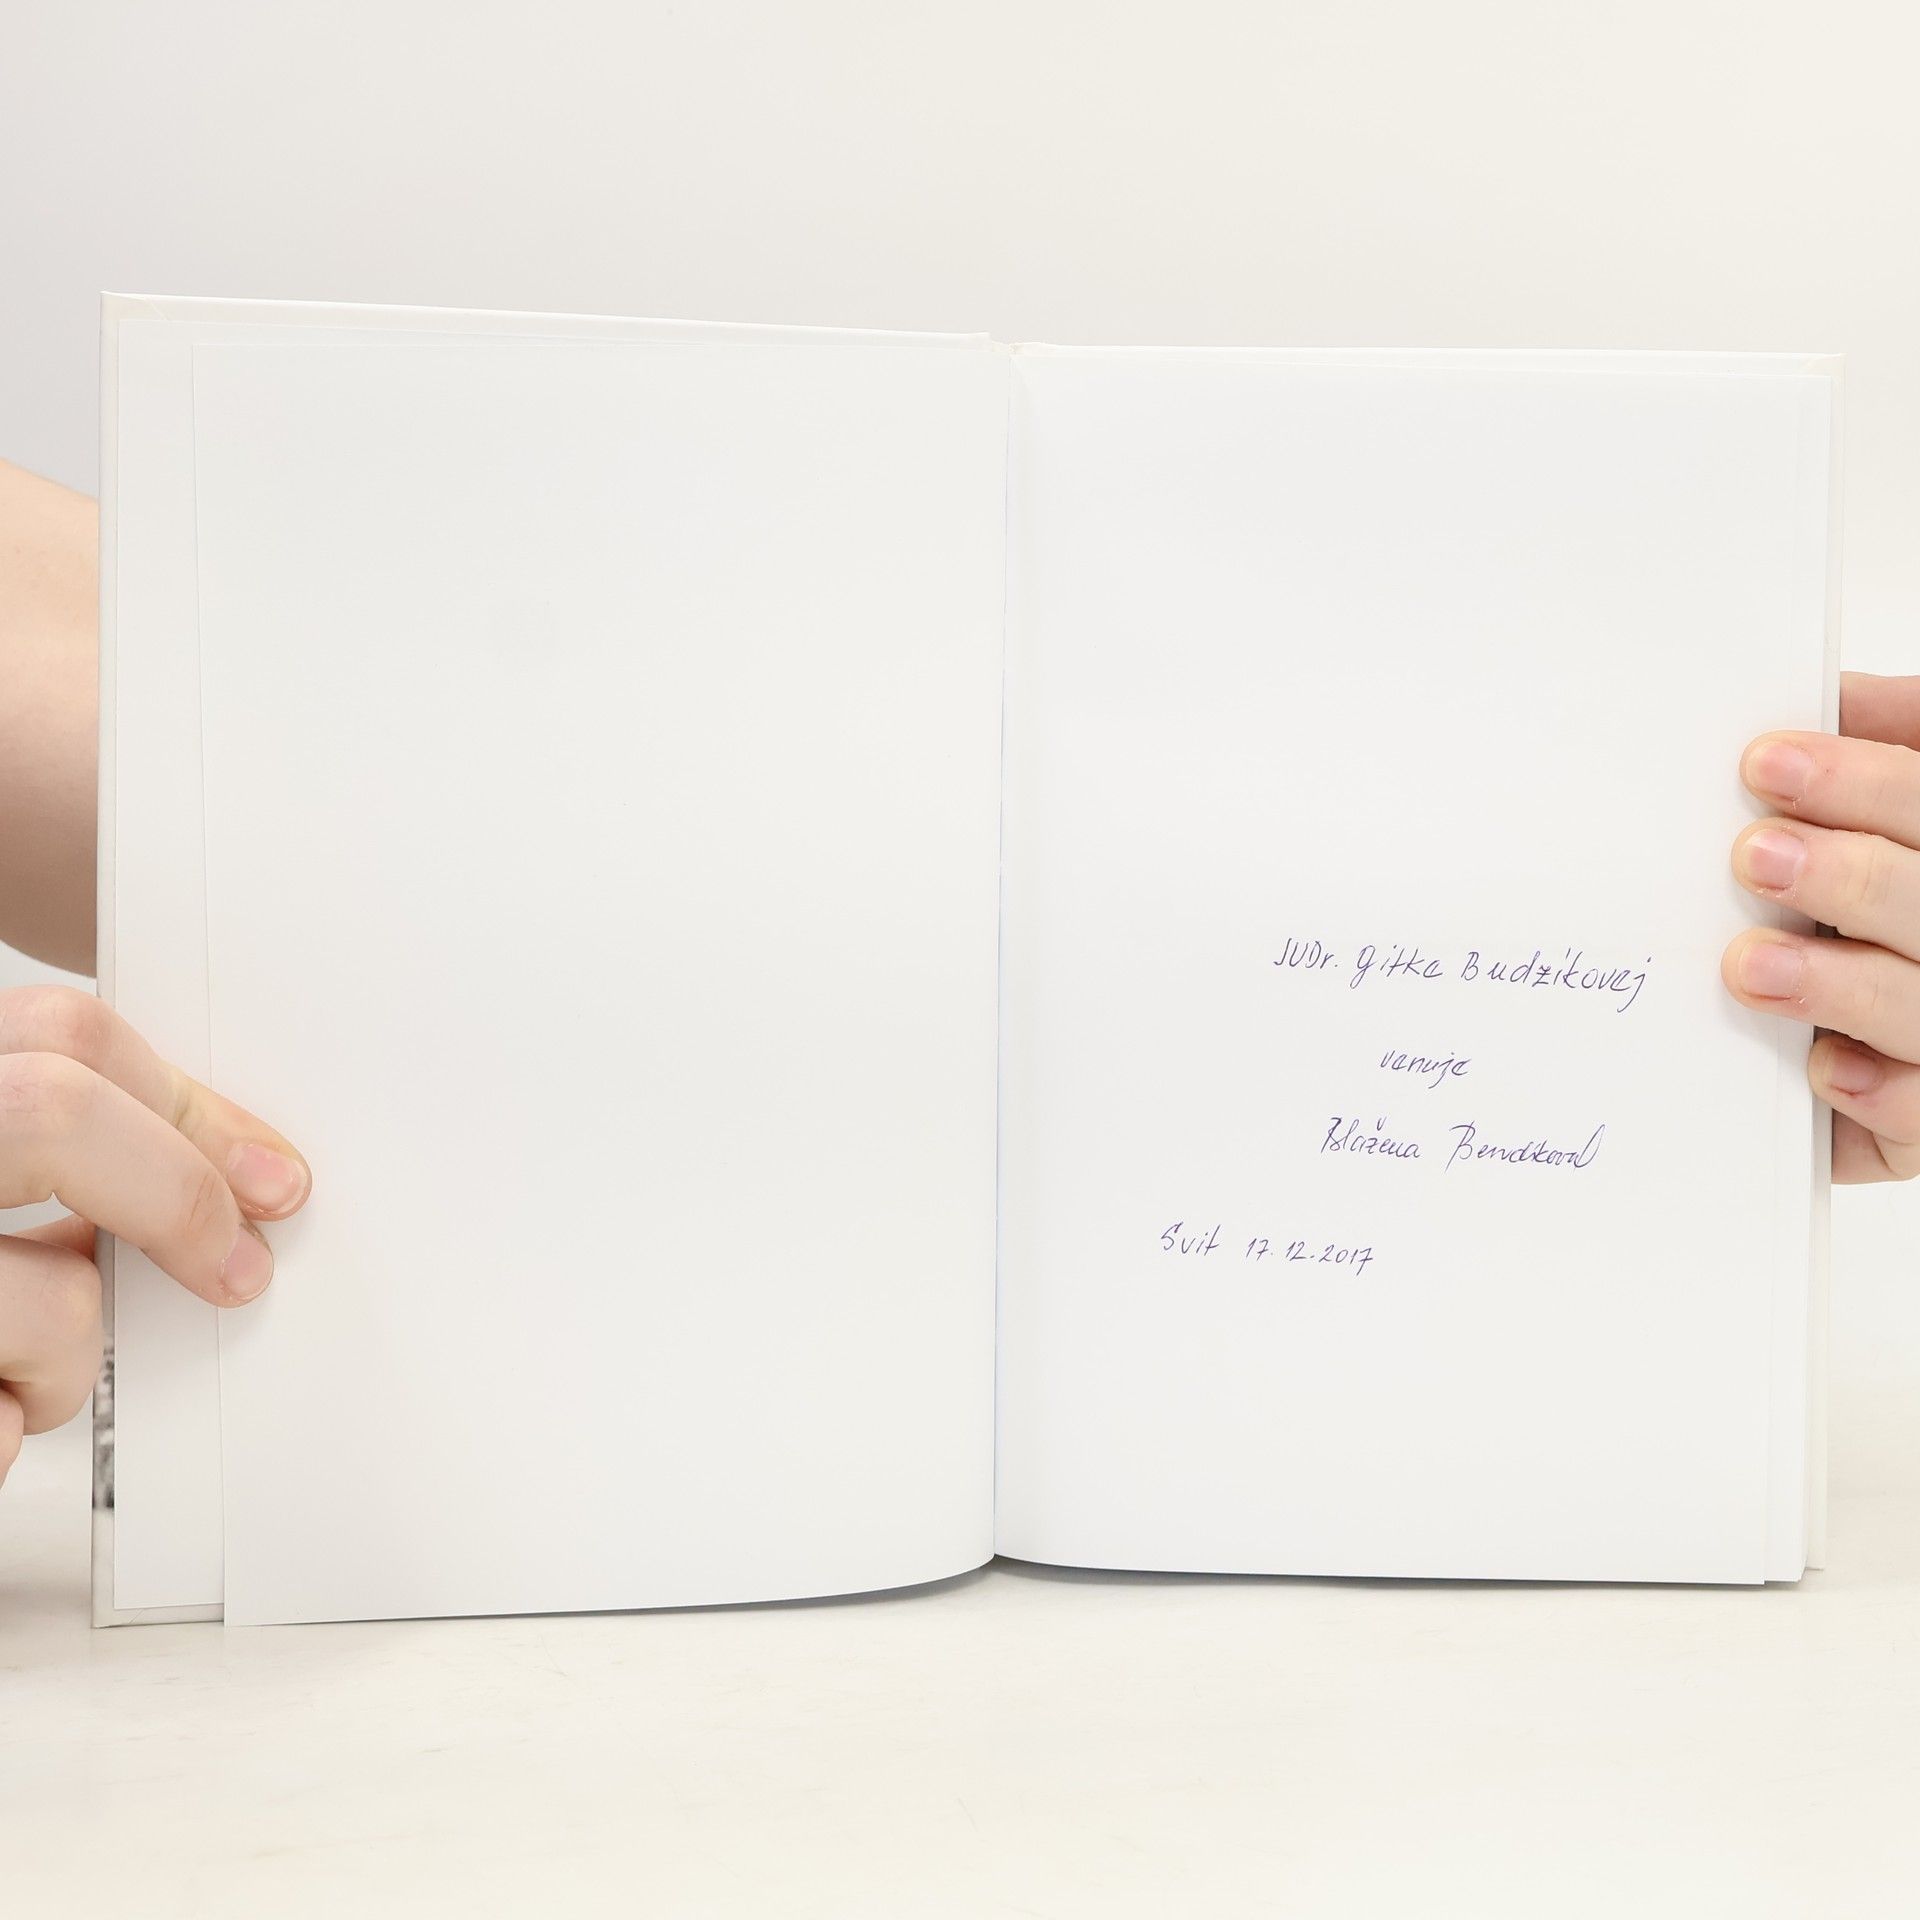 JUDr. Gitke Budzíkovej
venuje
Blažena Bendíková
Svit 17.12.2017